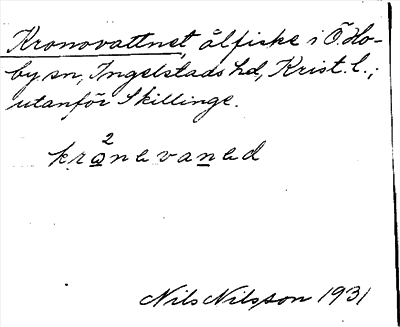 Kronovattnet, ålfiske i Ö. Ho-
by sn, Ingelstads hd, Krist. l.;
utanför Skillinge.
kro²nevaned
Nils Nilsson 1931